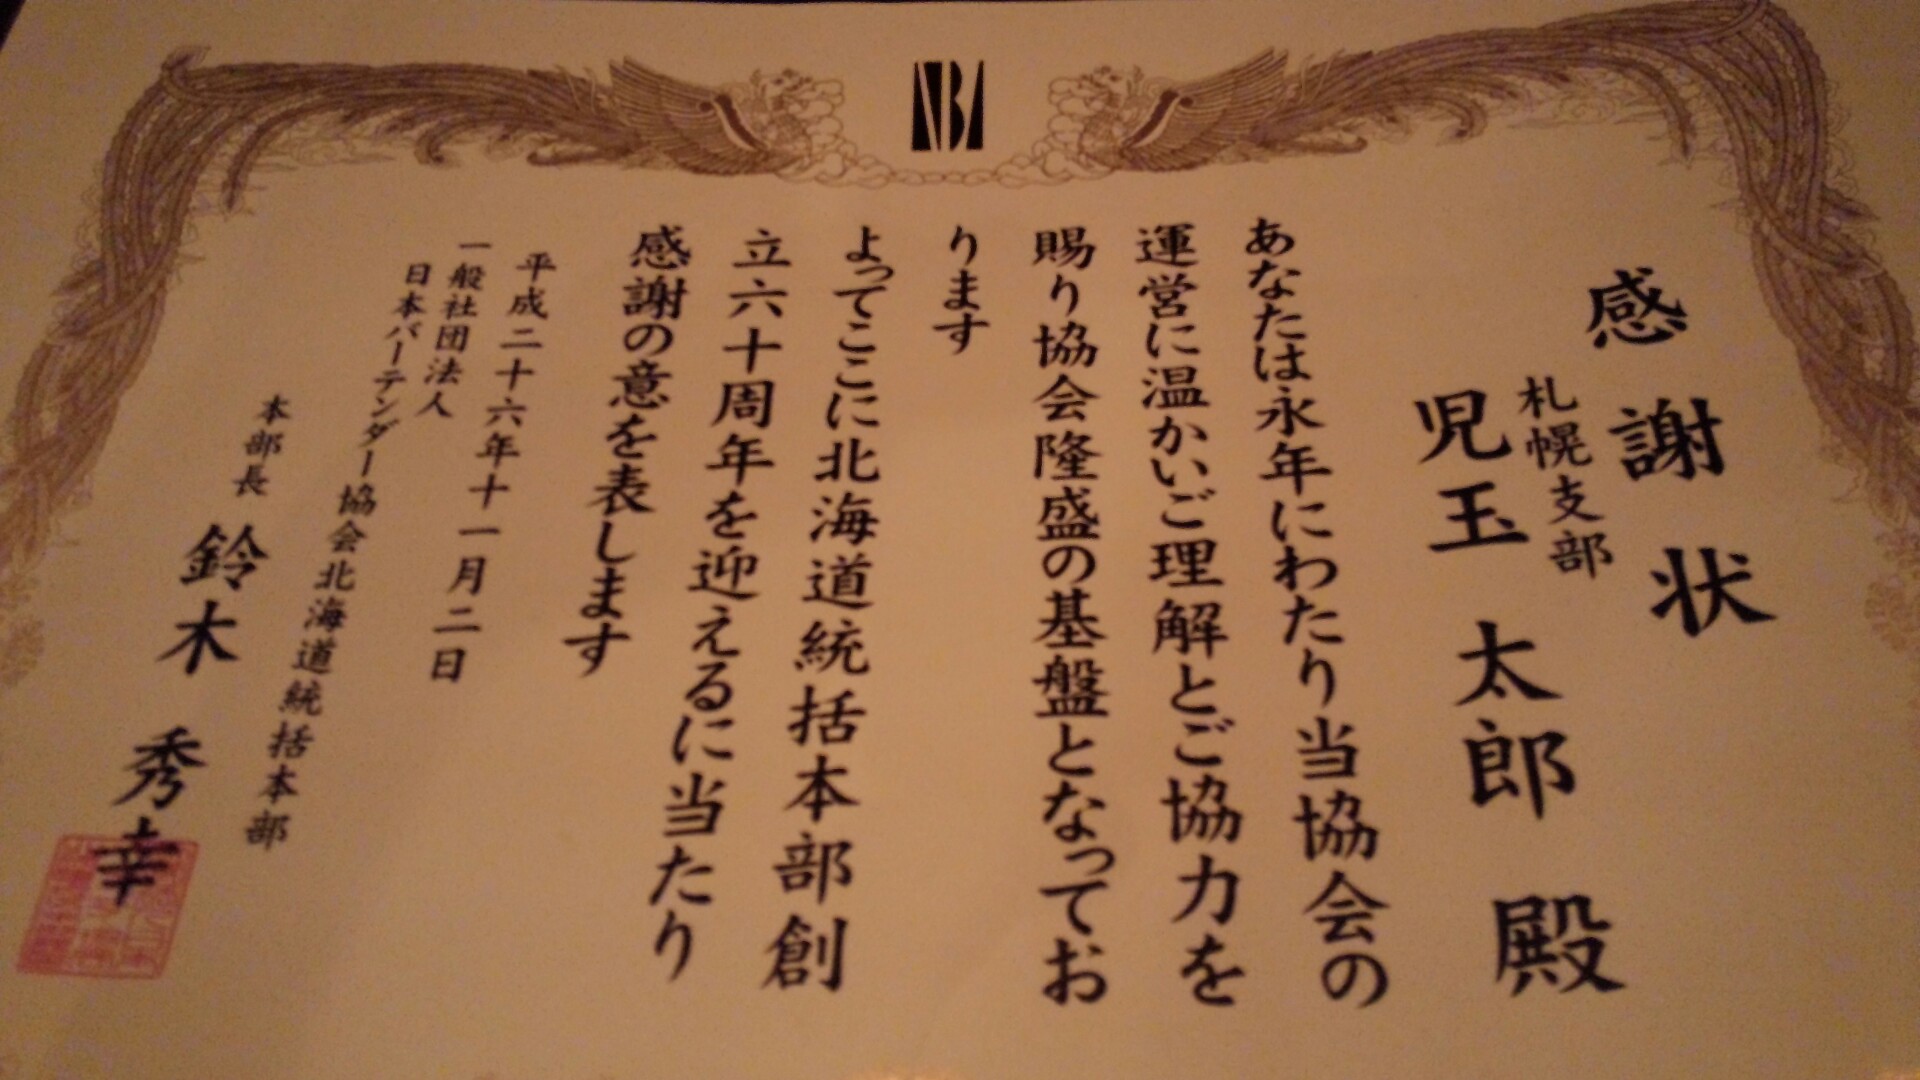 NBA
感謝状
札幌支部
児玉 太郎 殿
あなたは永年にわたり当協会の
運営に温かいご理解とご協力を
賜り協会隆盛の基盤となってお
ります
よってここに北海道統括本部創
立六十周年を迎えるに当たり
感謝の意を表します
平成二十六年十一月二日
一般社団法人
日本バーテンダー協会北海道統括本部
本部長 鈴木 秀幸